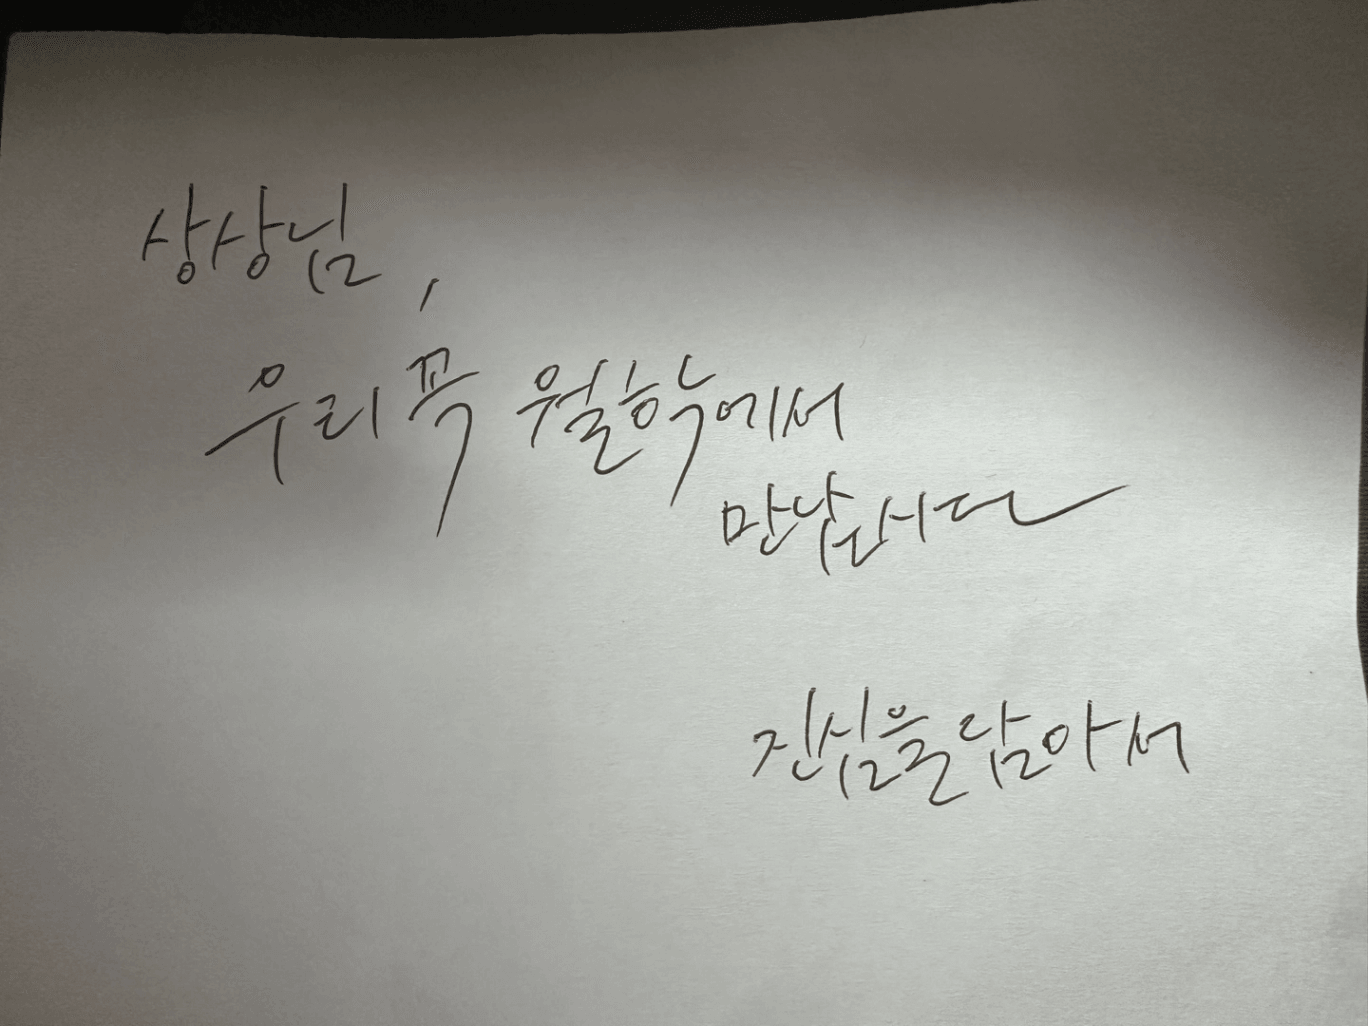 상상님,
우리 꼭 월학에서
만납시다
진심을 담아서